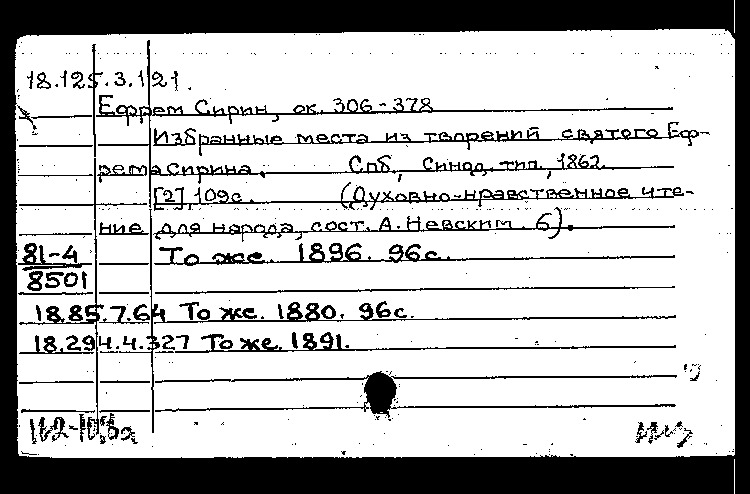 18.125.3.121.
Ефрем Сирин, ок. 306-378
Избранные места из творений святого Еф-
рема Сирина. Спб., Синод. тип., 1862.
[2], 109с. (Духовно-нравственное чте-
ние для народа, сост. А. Невским. 6).
81-4 То же. 1896. 96с.
8501
18.85.7.64 То же. 1880. 96с.
18.294.4.327 То же. 1891.